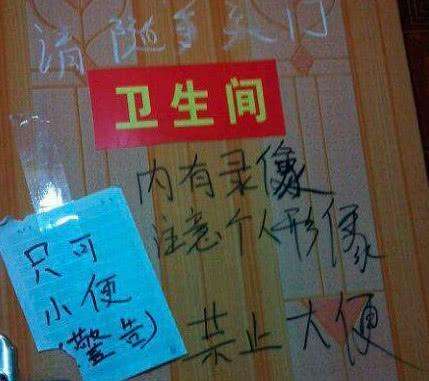 请随手关门
卫生间
内有录像
注意个人形像
禁止大便
只可
小便
(警告)